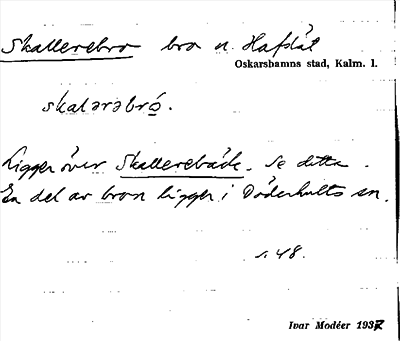 Skallerebro bro n. Hafslät
Oskarshamns stad, Kalm. l.
skalərəbró.
Ligger över Skallerebäck. Se detta.
En del av bron ligger i Döderhults sn.
s. 48.
Ivar Modéer 1937